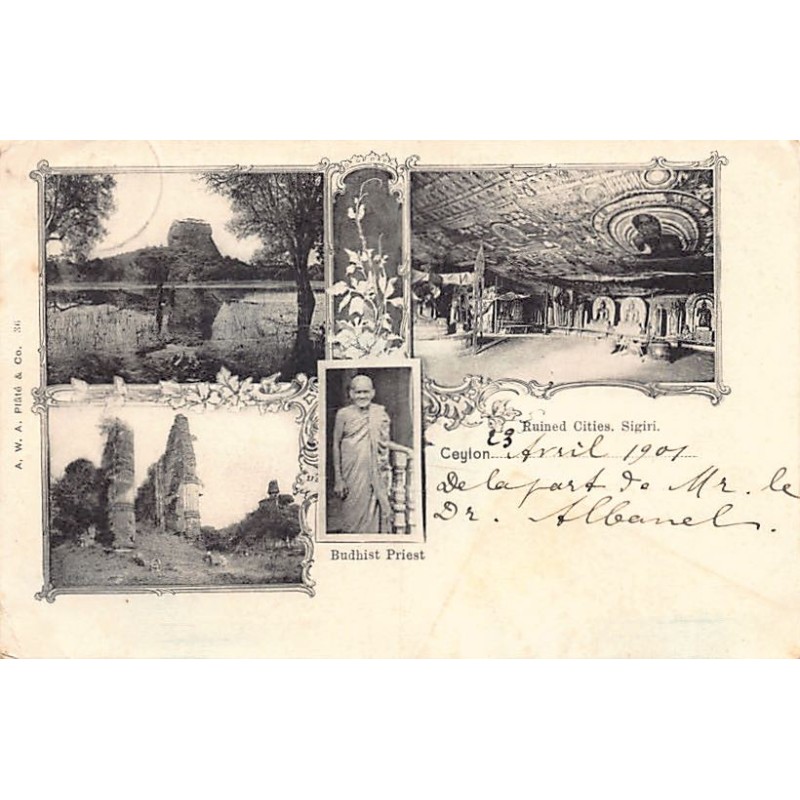 A. W. A. Plâté & Co. 36
Ruined Cities, Sigiri.
Ceylon 23 Avril 1901
De la part de Mr. le
Dr. Albanel.
Budhist Priest